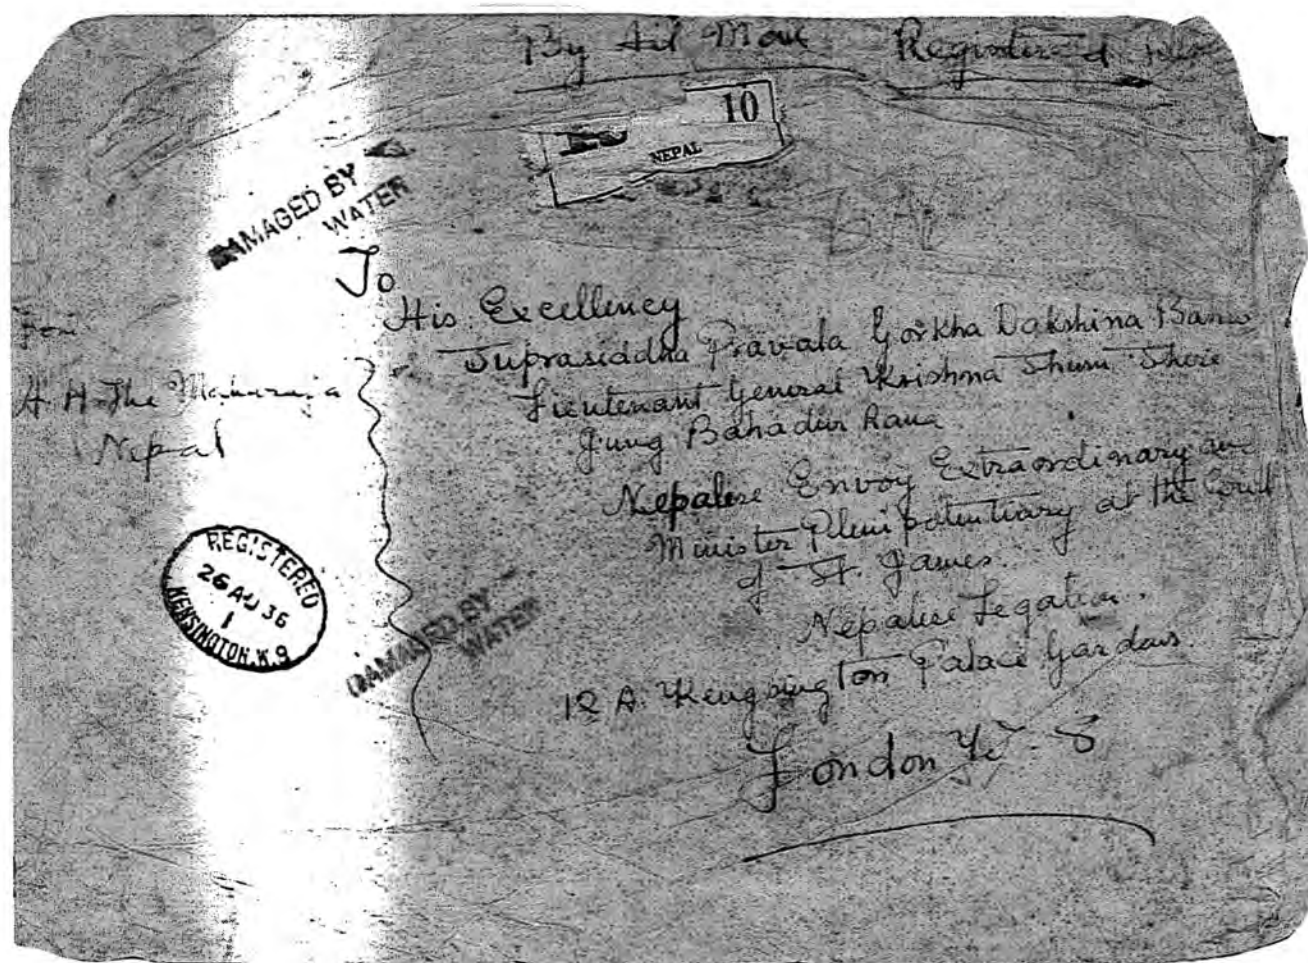 By Air Mail Registered
10
NEPAL
DAMAGED BY
WATER
To
His Excellency
Suprasiddha Pravala Gorkha Dakshina Bahu
Lieutenant General Krishna Shum Shere
Jung Bahadur Rana
Nepalese Envoy Extraordinary an
Minister Plenipotentiary at the Court
of St. James.
Nepalese Legation.
12 A. Kengsington Palace Gardens
London W. 8
From
H. H. The Maharaja
Nepal
REGISTERED
26 AU 36
1
KENSINGTON. W. 8
DAMAGED BY
WATER